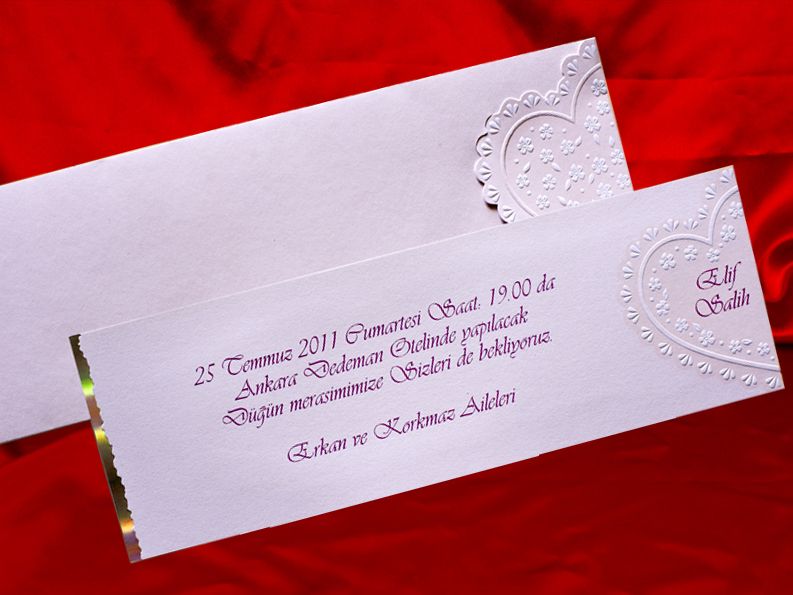 25 Temmuz 2011 Cumartesi Saat: 19.00 da
Ankara Dedeman Otelinde yapılacak
Düğün merasimimize Sizleri de bekliyoruz.
Erkan ve Korkmaz Aileleri
Elif
Salih